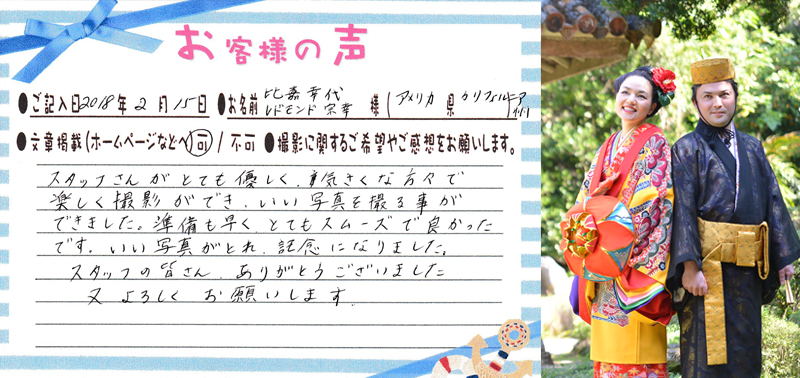 お客様の声
●ご記入日2018年2月15日 ●お名前 比嘉幸代
レドモンド宗幸 様(アメリカ 県 カリフォルニア州)
●文章掲載(ホームページなどへ) 可 / 不可 ●撮影に関するご希望やご感想をお願いします。
スタッフさんがとても優しく、気さくな方々で
楽しく撮影ができ、いい写真を撮る事が
できました。準備も早く、とてもスムーズで良かった
です。いい写真がとれ、記念になりました。
スタッフの皆さん、ありがとうございました
又よろしくお願いします。